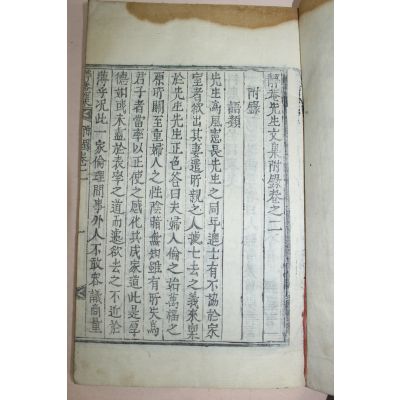 靜菴先生文集附錄卷之二
附錄
語類
先生爲風憲長先生之同年進士有不協於家
室者欲出其妻遣所親之人七去之義來稟
於先生先生正色答曰夫婦人倫之始萬福之
原所關至重婦人之性陰暗無知雖有所失爲
君子者當率以正使之感化共成家道此是厚
德如或未盡於表率之道而遽欲去之不近於
薄乎況此一家倫理間事外人不敢容議商量
附錄卷二